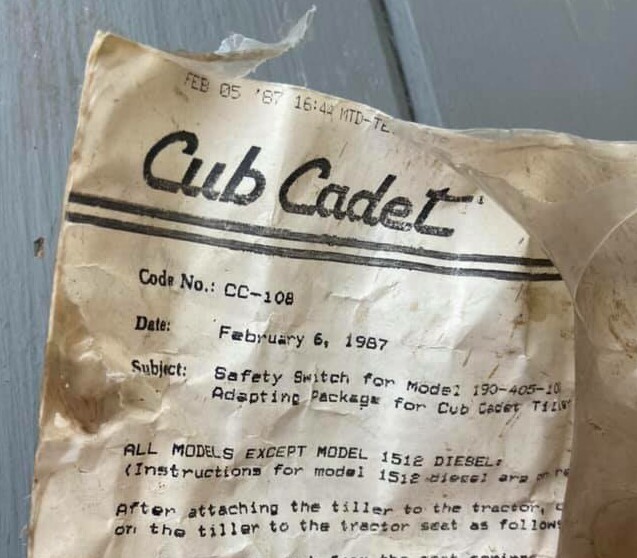 FEB 05 '87 16:44 MTD-TE
Cub Cadet
Code No.: CC-108
Date: February 6, 1987
Subject: Safety Switch for Model 190-405-10
Adapting Package for Cub Cadet Tiller
ALL MODELS EXCEPT MODEL 1512 DIESEL:
(Instructions for model 1512 diesel are on re
After attaching the tiller to the tractor,
on the tiller to the tractor seat as follows
from the seat